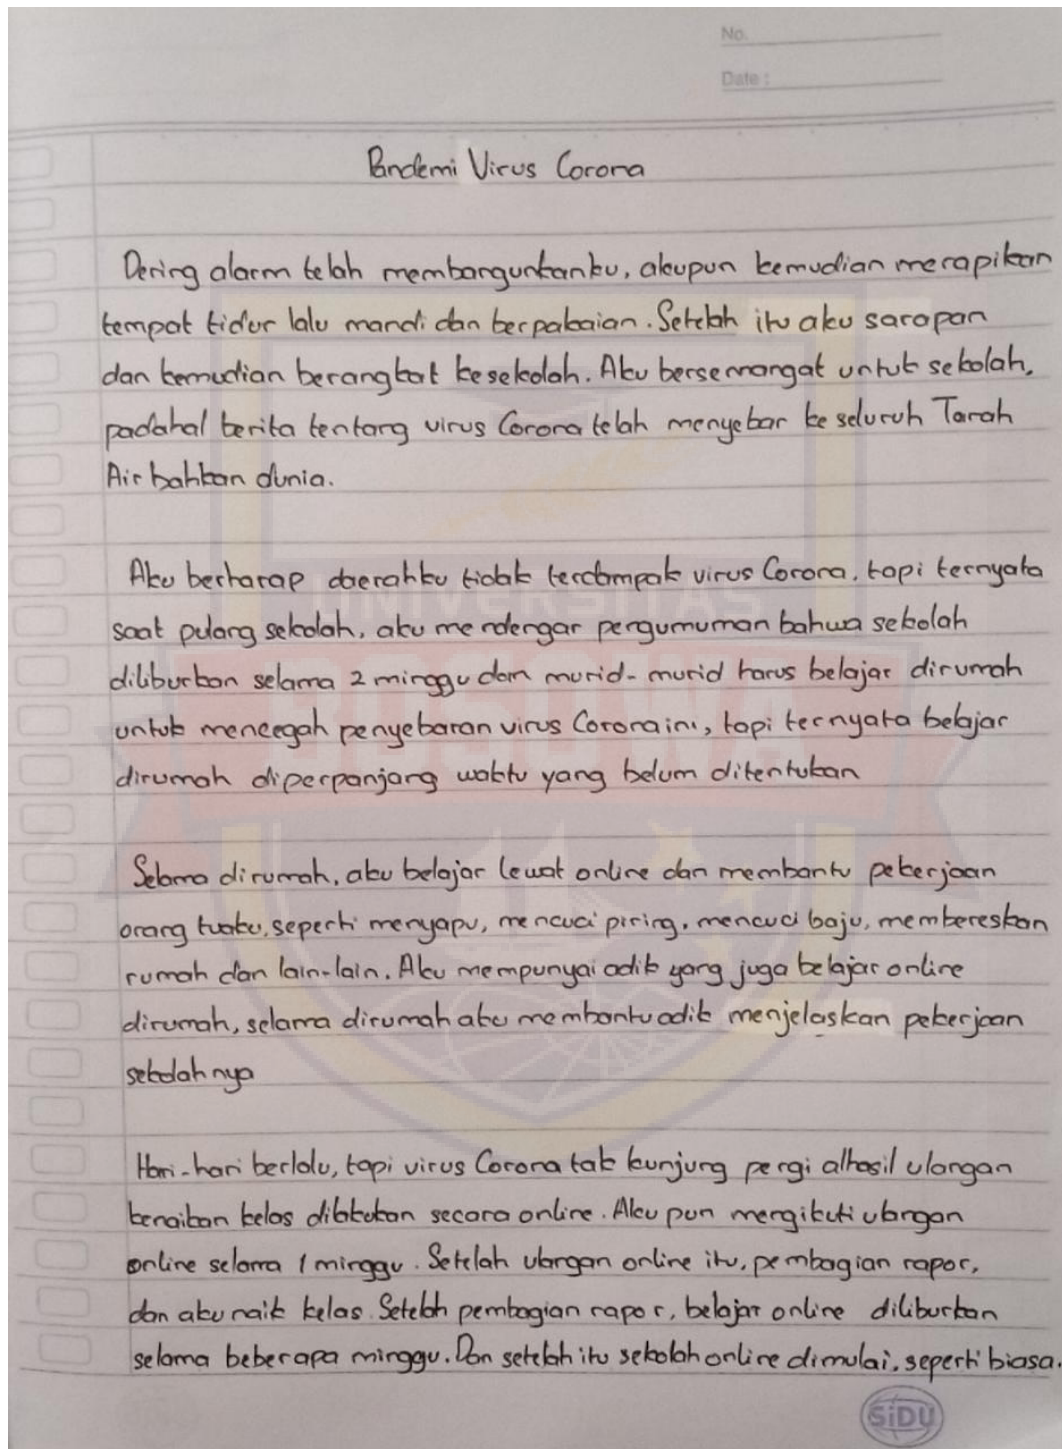 No.
Date :
Pandemi Virus Corona
Dering alarm telah membangunkanku, akupun kemudian merapikan
tempat tidur lalu mandi dan berpakaian. Setelah itu aku sarapan
dan kemudian berangkat kesekolah. Aku bersemangat untuk sekolah,
padahal berita tentang virus Corona telah menyebar ke seluruh Tanah
Air bahkan dunia.
Aku berharap daerahku tidak terdampak virus Corona, tapi ternyata
saat pulang sekolah, aku mendengar pergumuman bahwa sekolah
diliburkan selama 2 minggu dan murid-murid harus belajar dirumah
untuk mencegah penyebaran virus Corona ini, tapi ternyata belajar
dirumah diperpanjang waktu yang belum ditentukan
Selama dirumah, aku belajar lewat online dan membantu pekerjaan
orang tuaku, seperti menyapu, mencuci piring, mencuci baju, membereskan
rumah dan lain-lain. Aku mempunyai adik yang juga belajar online
dirumah, selama dirumah aku membantu adik menjelaskan pekerjaan
sekolahnya
Hari-hari berlalu, tapi virus Corona tak kunjung pergi alhasil ulangan
kenaikan kelas dilakukan secara online. Aku pun mengikuti ulangan
online selama 1 minggu. Setelah ulangan online itu, pembagian rapor,
dan aku naik kelas. Setelah pembagian rapor, belajar online diliburkan
selama beberapa minggu. Dan setelah itu sekolah online dimulai, seperti biasa.
SiDU
UNIVERSITAS
BOSOWA